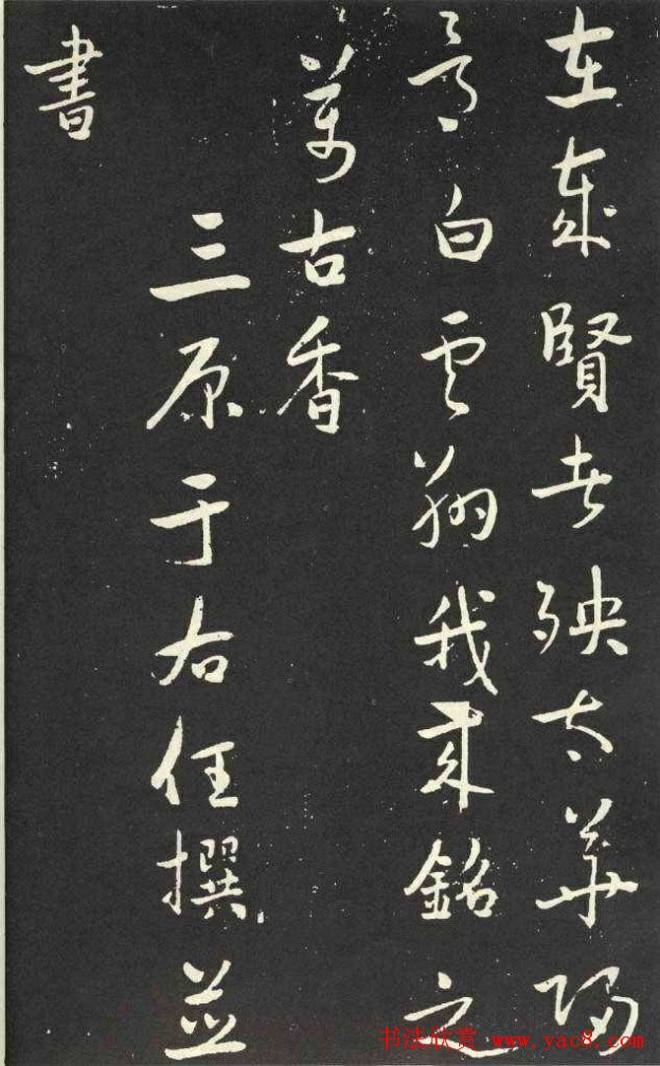 在歲賢者殃太華歸
意白雲翔我來銘之
萬古香
三原于右任撰並
書
书法欣赏 www.yac8.com